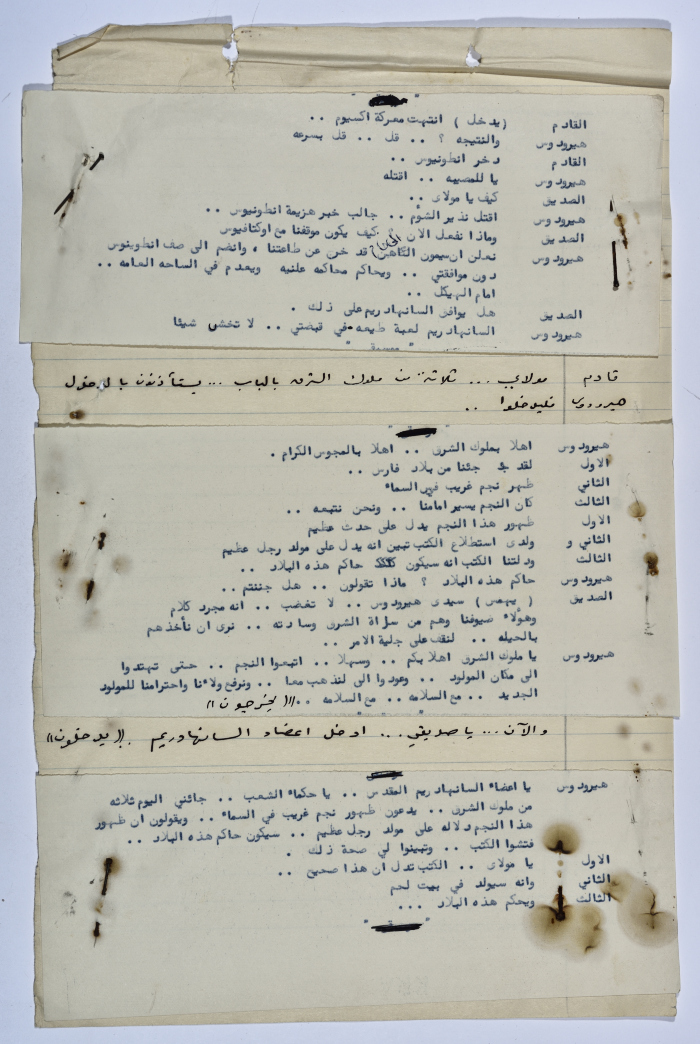 القادم (يدخل) انتهت معركة اكسيوم ..
هيرودوس والنتيجه ؟ .. قل .. قل بسرعه
القادم دخر انطونيوس ..
هيرودوس يا للمصيبه .. اقتله
الصديق كيف يا مولاى ..
هيرودوس اقتل نذير الشؤم .. جالب خبر هزيمة انطونيوس ..
الصديق وماذا نفعل الان ؟ كيف يكون موقفنا مع اوكتافيوس
هيرودوس نعلن ان سيمون الكاهن قد خرج عن طاعتنا ، وانضم الى صف انطونيوس
دون موافقتي .. ويحاكم محاكمه علنيه ويعدم في الساحه العامه ..
امام الهيكل ..
الصديق هل يوافق السانهادريم على ذلك .
هيرودوس السانهادريم لعبة طيعه في قبضتي .. لا تخش شيئا
قادم مولاي ... ثلاثة من ملوك الشرق بالباب ... يستأذنون بالدخول
هيرودوس فليدخلوا ..
هيرودوس اهلا بملوك الشرق .. اهلا بالمجوس الكرام .
الاول لقد جئنا من بلاد فارس ..
الثاني ظهر نجم غريب في السماء
الثالث كان النجم يسير امامنا .. ونحن نتبعه ..
الاول ظهور هذا النجم يدل على حدث عظيم
الثاني و ولدى استطلاع الكتب تبين انه يدل على مولد رجل عظيم
الثالث ودلتنا الكتب انه سيكون حاكم هذه البلاد ..
هيرودوس حاكم هذه البلاد ؟ ماذا تقولون .. هل جننتم ..
الصديق ( يهمس ) سيدى هيرودوس .. لا تغضب .. انه مجرد كلام
وهؤلاء ضيوفنا وهم من سراة الشرق وسادته .. نرى ان نأخذهم
بالحيله .. لنقف على جلية الامر ..
هيرودوس يا ملوك الشرق اهلا بكم .. وسهلا .. اتبعوا النجم .. حتى تهتدوا
الى مكان المولود .. وعودوا الى لنذهب معا .. ونرفع ولاءنا واحترامنا للمولود
الجديد .. مع السلامه .. مع السلامه .. (( يخرجون ))
والآن ... يا صديقي ... ادخل اعضاء السانهادريم .. (( يدخلون ))
هيرودوس يا اعضاء السانهادريم المقدس .. يا حكماء الشعب .. جائني اليوم ثلاثه
من ملوك الشرق .. يدعون ظهور نجم غريب في السماء .. ويقولون ان ظهور
هذا النجم دلاله على مولد رجل عظيم .. سيكون حاكم هذه البلاد ..
فتشوا الكتب .. وتبينوا لي صحة ذلك .
الاول يا مولاى .. الكتب تدل ان هذا صحيح ..
الثاني وانه سيولد في بيت لحم
الثالث ويحكم هذه البلاد ...